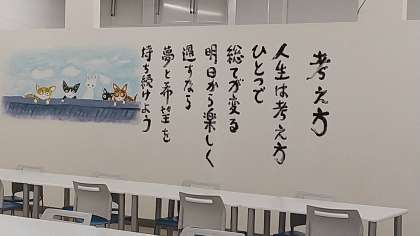 考え方
人生は考え方
ひとつで
総てが変る
明日から楽しく
過すなら
夢と希望を
持ち続けよう